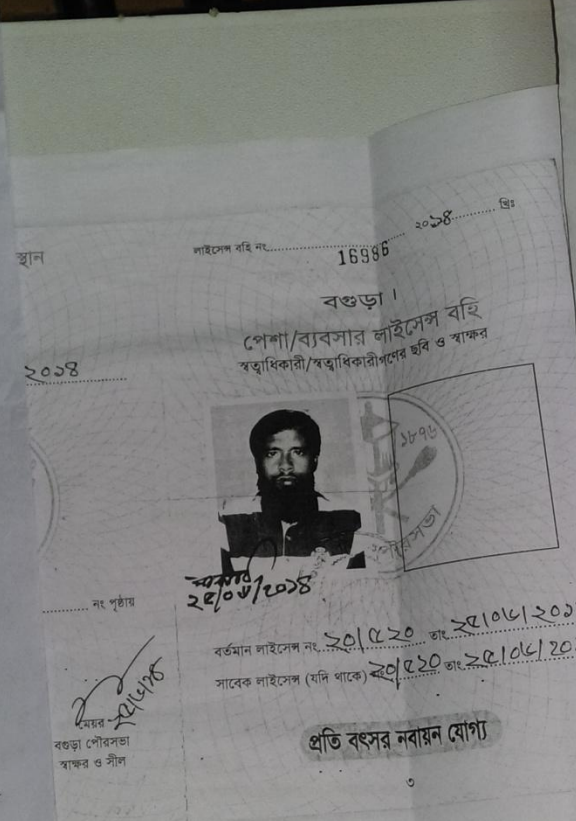 ২০১৪ খ্রিঃ
স্থান
লাইসেন্স বহি নং 16996
বগুড়া।
পেশা/ব্যবসার লাইসেন্স বহি
স্বত্বাধিকারী/স্বত্বাধিকারীগণের ছবি ও স্বাক্ষর
২০১৪
১৮৭৬
পৌরসভা
নং পৃষ্ঠায়
বর্তমান লাইসেন্স নং ২০/৫২০ তাং
সাবেক লাইসেন্স (যদি থাকে) ২০/৫২০ তাং
মেয়র
বগুড়া পৌরসভা
স্বাক্ষর ও সীল
প্রতি বৎসর নবায়ন যোগ্য
৩